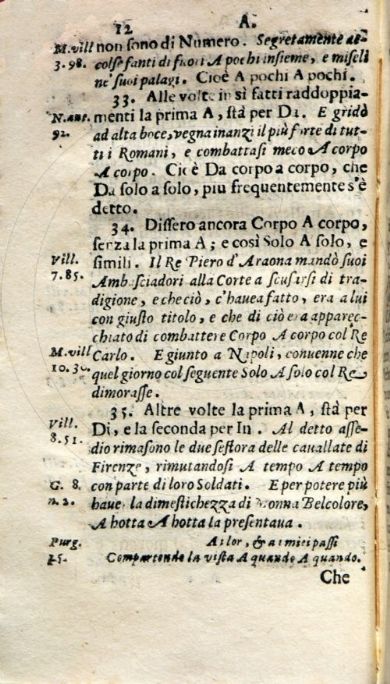 12 A.
M. vill non sono di Numero. Segretamente ac-
3. 98. colse fanti di fuori A pochi insieme, e miseli
ne' suoi palagi. Cioè A pochi A pochi.
33. Alle volte in sì fatti raddoppia-
N. ant. menti la prima A, stà per Da. E gridò
92. ad alta boce, vegna inanzi il più forte di tut-
ti i Romani, e combattasi meco A corpo
A corpo. Cioè Da corpo a corpo, che
Da solo a solo, piu frequentemente s'è
detto.
34. Dissero ancora Corpo A corpo,
senza la prima A; e così Solo A solo, e
Vill. simili. Il Re Piero d'Araona mandò suoi
7. 85. Ambasciadori alla Corte a scusarsi di tra-
digione, e che ciò, c'havea fatto, era a lui
con giusto titolo, e che di ciò era apparec-
chiato di combattere Corpo A corpo col Re
M. vill Carlo. E giunto a Napoli, convenne che
10. quel giorno col seguente Solo A solo col Re
dimorasse.
35. Altre volte la prima A, stà per
Vill. Di, e la seconda per In. Al detto asse-
8. 51. dio rimasono le due sestora delle cavallate di
Firenze, rimutandosi A tempo A tempo
G. 8. con parte di loro Soldati. E per potere più
n. 2. haver la dimestichezza di Monna Belcolore,
A hotta A hotta la presentava.
Purg. A lor, & a i miei passi
25. Compartendo la vista A quando A quando.
Che